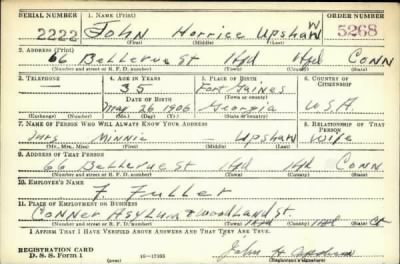 SERIAL NUMBER 1. NAME (Print) ORDER NUMBER
2222 John Horrice Upshaw 5268
(First) (Middle) (Last)
2. ADDRESS (Print)
66 Bellevue St Htfd Htfd Conn
(Number and street or R. F. D. number) (Town) (County) (State)
3. TELEPHONE 4. AGE IN YEARS 5. PLACE OF BIRTH 6. COUNTRY OF CITIZENSHIP
35 Fort Gaines
DATE OF BIRTH (Town or county)
— May 26 1906 Georgia U.S.A
(Exchange) (Number) (Mo.) (Day) (Yr.) (State or country)
7. NAME OF PERSON WHO WILL ALWAYS KNOW YOUR ADDRESS 8. RELATIONSHIP OF THAT PERSON
Mrs Minnie Upshaw Wife
(Mr., Mrs., Miss) (First) (Middle) (Last)
9. ADDRESS OF THAT PERSON
66 Bellevue St Htfd Htfd Conn
(Number and street or R. F. D. number) (Town) (County) (State)
10. EMPLOYER'S NAME
F. Fuller
11. PLACE OF EMPLOYMENT OR BUSINESS
Conner Asylum & Woodland St. Htfd Htfd Ct
(Number and street or R. F. D. number) (Town) (County) (State)
I AFFIRM THAT I HAVE VERIFIED ABOVE ANSWERS AND THAT THEY ARE TRUE.
REGISTRATION CARD
D. S. S. Form 1 16—17105 John H Upshaw
(Registrant's signature)